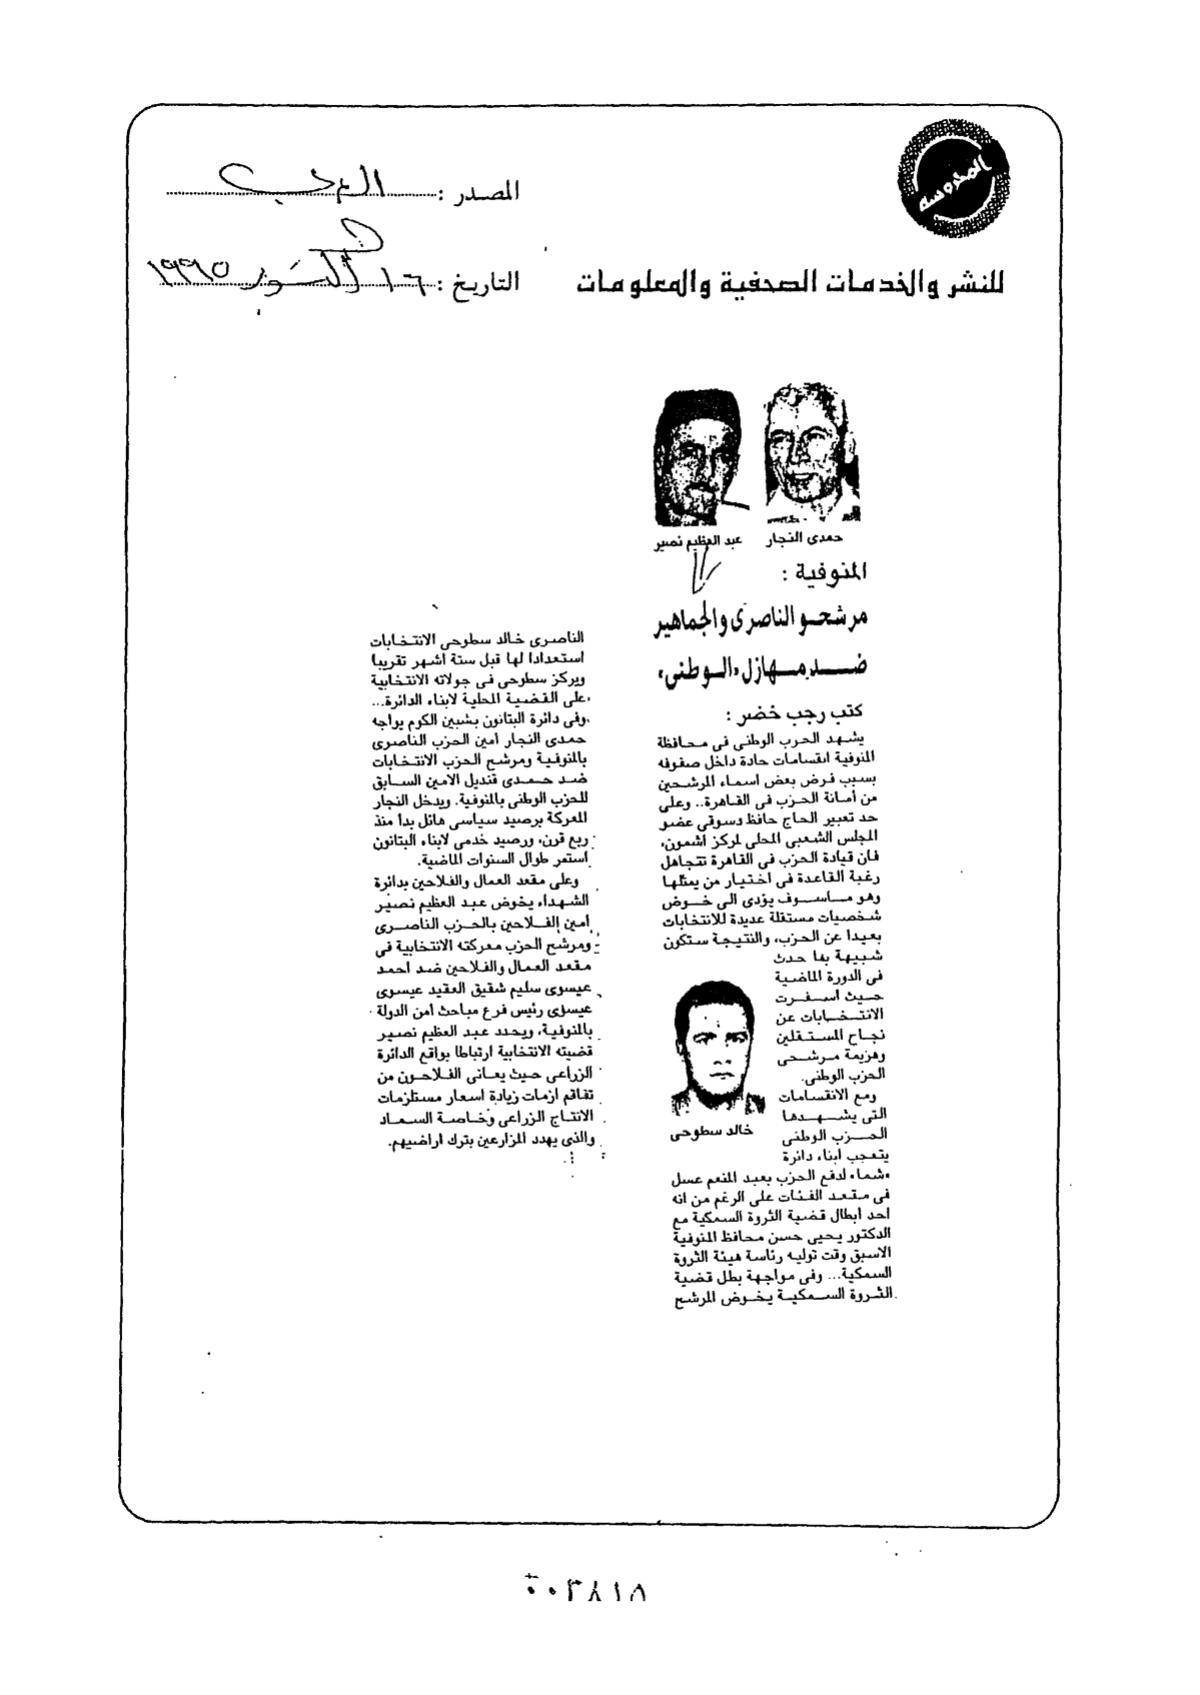 المحروسة
المصدر : العربى
للنشر والخدمات الصحفية والمعلومات
التاريخ : ١٦ أكتوبر ١٩٩٥
حمدى النجار
عبد العظيم نصير
المنوفية :
مرشحو الناصرى والجماهير
ضد مهازل «الوطنى»
كتب رجب خضر :
يشهد الحزب الوطنى فى محافظة
المنوفية انقسامات حادة داخل صفوفه
بسبب فرض بعض اسماء المرشحين
من أمانة الحزب فى القاهرة.. وعلى
حد تعبير الحاج حافظ دسوقى عضو
المجلس الشعبى المحلى لمركز اشمون،
فان قيادة الحزب فى القاهرة تتجاهل
رغبة القاعدة فى اختيار من يمثلها
وهو ماسوف يؤدى الى خوض
شخصيات مستقلة عديدة للانتخابات
بعيدا عن الحزب، والنتيجة ستكون
شبيهة بما حدث
فى الدورة الماضية
حيث اسفرت
الانتخابات عن
نجاح المستقلين
وهزيمة مرشحى
الحزب الوطنى.
ومع الانقسامات
التى يشهدها
الحزب الوطنى
يتعجب ابناء دائرة
«شما» لدفع الحزب بعبد المنعم عسل
فى مقعد الفئات على الرغم من انه
احد ابطال قضية الثروة السمكية مع
الدكتور يحيى حسن محافظ المنوفية
الاسبق وقت توليه رئاسة هيئة الثروة
السمكية... وفى مواجهة بطل قضية
الثروة السمكية يخوض المرشح
خالد سطوحى
الناصرى خالد سطوحى الانتخابات
استعدادا لها قبل ستة اشهر تقريبا
ويركز سطوحى فى جولاته الانتخابية
على القضية المحلية لابناء الدائرة...
وفى دائرة البتانون بشبين الكوم يواجه
حمدى النجار أمين الحزب الناصرى
بالمنوفية ومرشح الحزب الانتخابات
ضد حمدى قنديل الامين السابق
للحزب الوطنى بالمنوفية. ويدخل النجار
المعركة برصيد سياسى هائل بدأ منذ
ربع قرن، ورصيد خدمى لابناء البتانون
استمر طوال السنوات الماضية.
وعلى مقعد العمال والفلاحين بدائرة
الشهداء يخوض عبد العظيم نصير
أمين الفلاحين بالحزب الناصرى
ومرشح الحزب معركته الانتخابية فى
مقعد العمال والفلاحين ضد احمد
عيسوى سليم شقيق العقيد عيسوى
عيسوى رئيس فرع مباحث امن الدولة
بالمنوفية، ويحدد عبد العظيم نصير
قضيته الانتخابية ارتباطا بواقع الدائرة
الزراعى حيث يعانى الفلاحون من
تفاقم ازمات زيادة اسعار مستلزمات
الانتاج الزراعى وخاصة السماد
والذى يهدد المزارعين بترك اراضيهم.